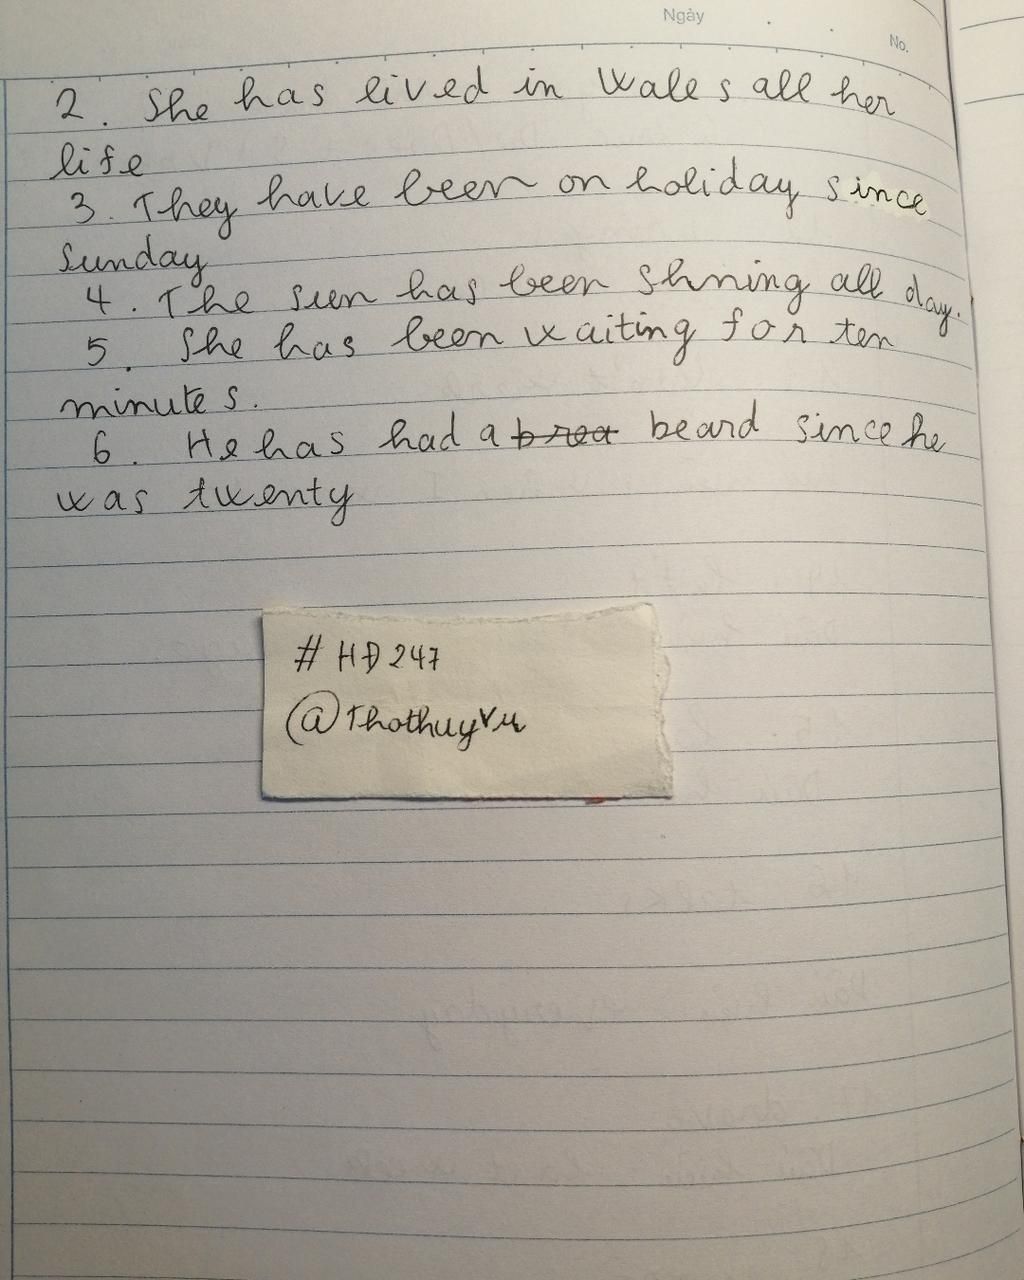 Ngày
No.
2. She has lived in Wales all her
life
3. They have been on holiday since
Sunday
4. The sun has been shning all day.
5. She has been waiting for ten
minutes.
6. He has had a brea beard since he
was twenty
# HĐ 247
@Thothuyvu